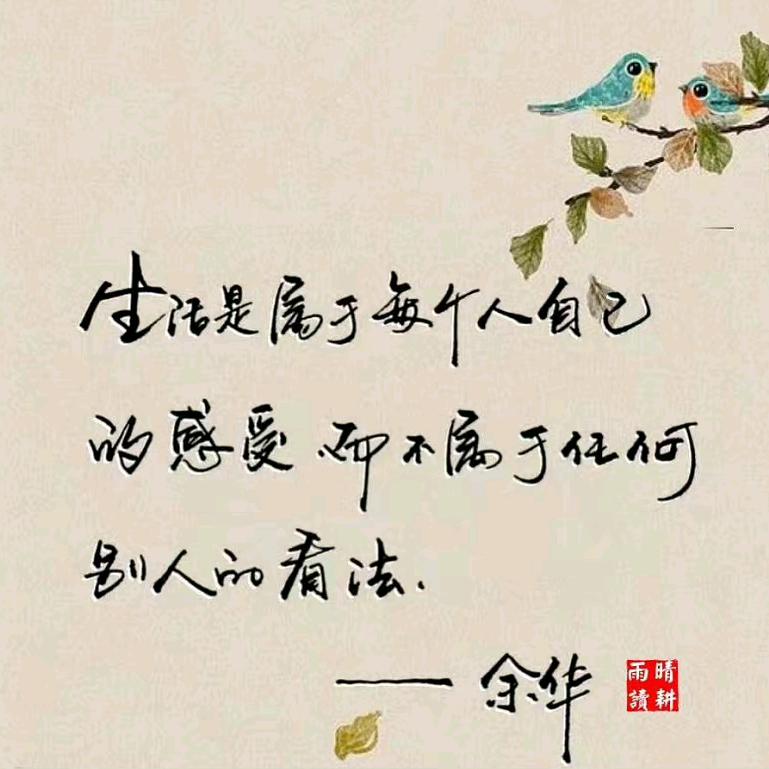 生活是属于每个人自己
的感受,而不属于任何
别人的看法.
——余华
晴耕
雨讀